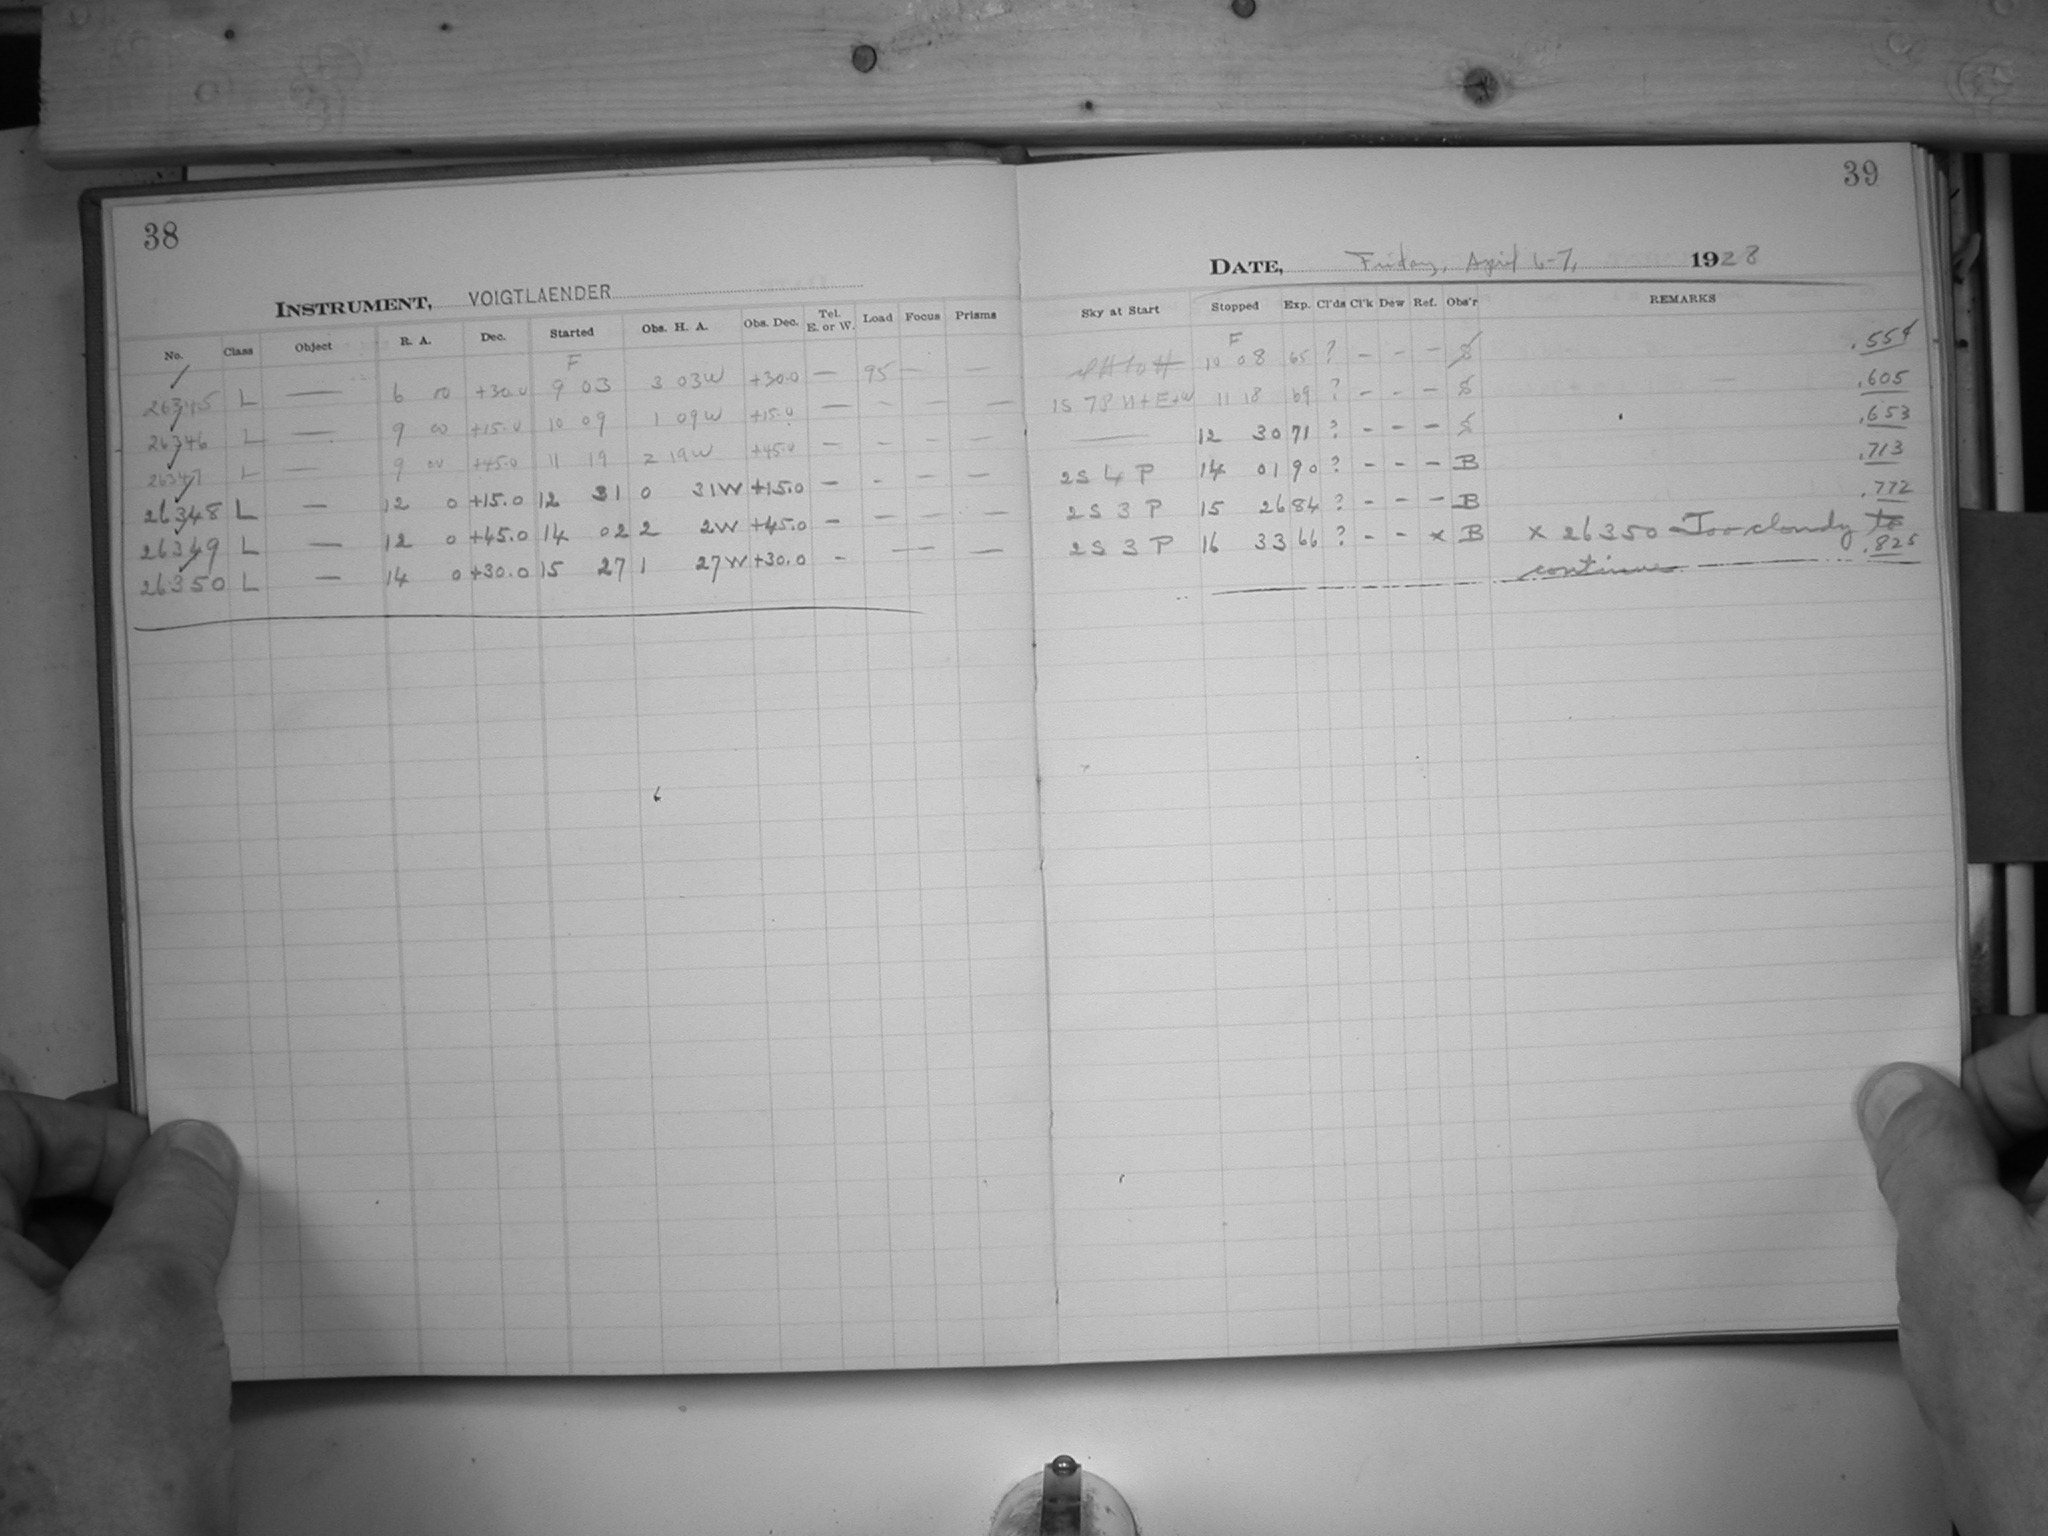 38
INSTRUMENT, VOIGTLAENDER
No. Class Object R. A. Dec. Started Obs. H. A. Obs. Dec. Tel. E. or W. Load Focus Prisms
F
26345 L — 6 00 +30.0 9 03 3 03W +30.0 — 95 — —
26346 L — 9 00 +15.0 10 09 1 09W +15.0 — - — —
26347 L — 9 00 +45.0 11 19 2 19W +45.0 — - — —
26348 L — 12 0 +15.0 12 31 0 31W +15.0 — - — —
26349 L — 12 0 +45.0 14 02 2 2W +45.0 — — — —
26350 L — 14 0 +30.0 15 27 1 27W +30.0 - — —
39
DATE, Friday, April 6-7, 1928
Sky at Start Stopped Exp. Cl'ds Cl'k Dew Ref. Obs'r REMARKS
F
10 08 65 ? - - - .554
1S 7P H+E+W 11 18 69 ? - - - .605
— 12 30 71 ? - - - .653
2S 4 P 14 01 90 ? - - - B .713
2S 3 P 15 26 84 ? - - - B .772
2S 3 P 16 33 66 ? - - x B x 26350 - Too cloudy to
continue .825